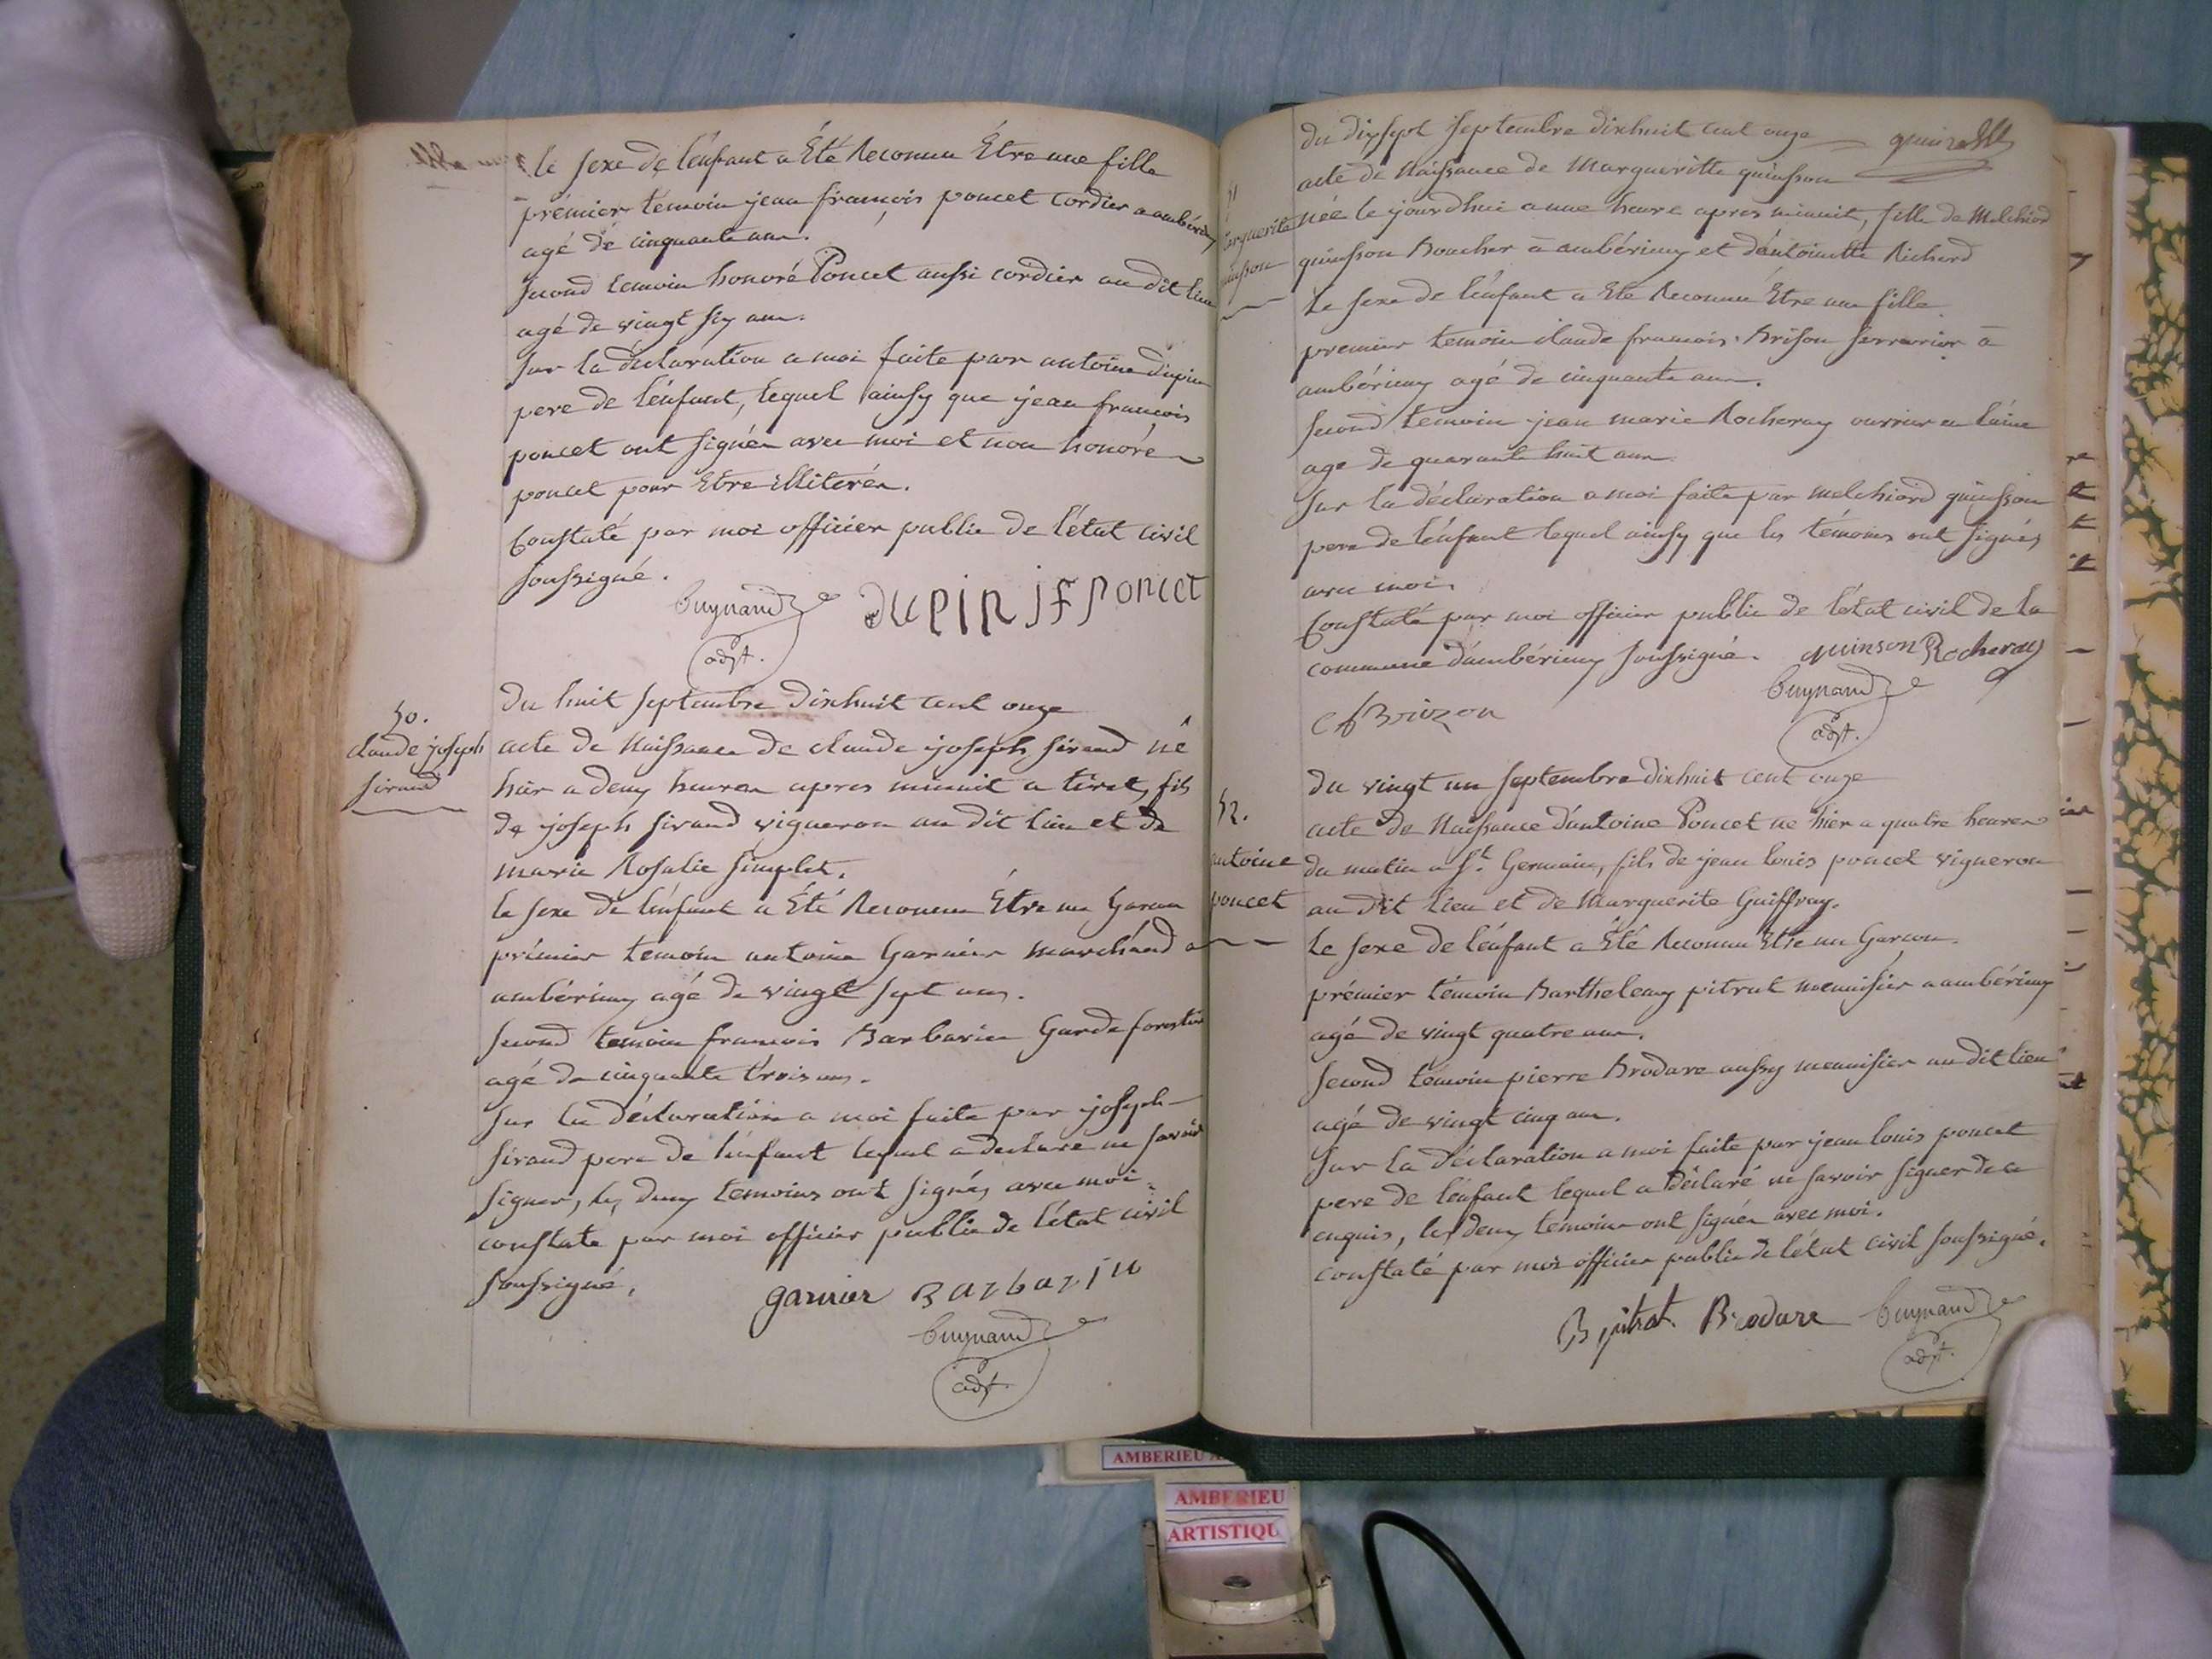 le sexe de l'enfant a Été Reconnu Être une fille
prémier temoin jean françois poncet cordier a ambérieu
agé de cinquante ans.
second temoin honoré Poncet aussi cordier au dit lieu
agé de vingt six ans.
sur la déclaration a moi faite par antoine dupin
pere de l'enfant, lequel ainsy que jean françois
poncet ont signés avec moi et non honoré
poncet pour Etre illiterés.
Constaté par moi officier public de l'état civil
soussigné.
Cuynand dupin jf poncet
adjt.
50.
claude joseph
siraud
du huit septembre dixhuit cent onze
acte de Naissance de claude joseph siraud né
hier a deux heures apres minuit a tiret, fils
de joseph siraud vigneron au dit lieu et de
marie Rosalie simplet.
le sexe de l'enfant a Été Reconnu Être un Garcon
prémier temoin antoine Garnier marchand a
ambérieux agé de vingt sept ans.
second temoin francois Barbarin Garde forestier
agé de cinquante trois ans.
sur la déclaration a moi faite par joseph
siraud pere de l'enfant lequel a declaré ne savoir
signer, les deux temoins ont signés avec moi.
constate par moi officier public de l'état civil
soussigné.
garnier Barbarin
Cuynand
adjt.
du dixsept septembre dixhuit cent onze
51
arguerite
uinson
acte de Naissance de Margueritte quinsson
née le jourdhui a une heure apres minuit, fille de Melchiord
quinsson Boucher a ambérieux et d'antoinette Richerd
Le sexe de l'enfant a Eté Reconnu Etre une fille.
premier temoin claude francois Brison serrurier a
ambérieux agé de cinquante ans.
second temoin jean marie Rocheray ouvrier en laine
age de quarante huit ans.
sur la déclaration a moi faite par melchiord quinsson
pere de l'enfant lequel ainsy que les témoins ont signés
avec moi.
Constaté par moi officier public de l'état civil de la
commune d'ambérieux soussigné. quinson Rocheray
cf Brizon Cuynand
adjt.
52.
antoine
poncet
du vingt un septembre dixhuit cent onze
acte de Naissance d'antoine Poncet ne hier a quatre heures
du matin a St. Germain, fils de jean louis poncet vigneron
au dit Lieu et de Marguerite Guiffray.
Le sexe de l'enfant a Été Reconnu Etre un Garcon.
prémier témoin Barthelemy pitrat menuisier a ambérieux
agé de vingt quatre ans.
second témoin pierre Brodare aussy menuisier au dit lieu
agé de vingt cinq ans.
sur la déclaration a moi faite par jean louis poncet
pere de l'enfant lequel a déclaré ne savoir signer de ce
enquis, les deux temoins ont signés avec moi.
constaté par moi officier public de l'état civil soussigné.
B pitrat Brodare Cuynand
adjt.
AMBERIEU
AMBERIEU
ARTISTIQU